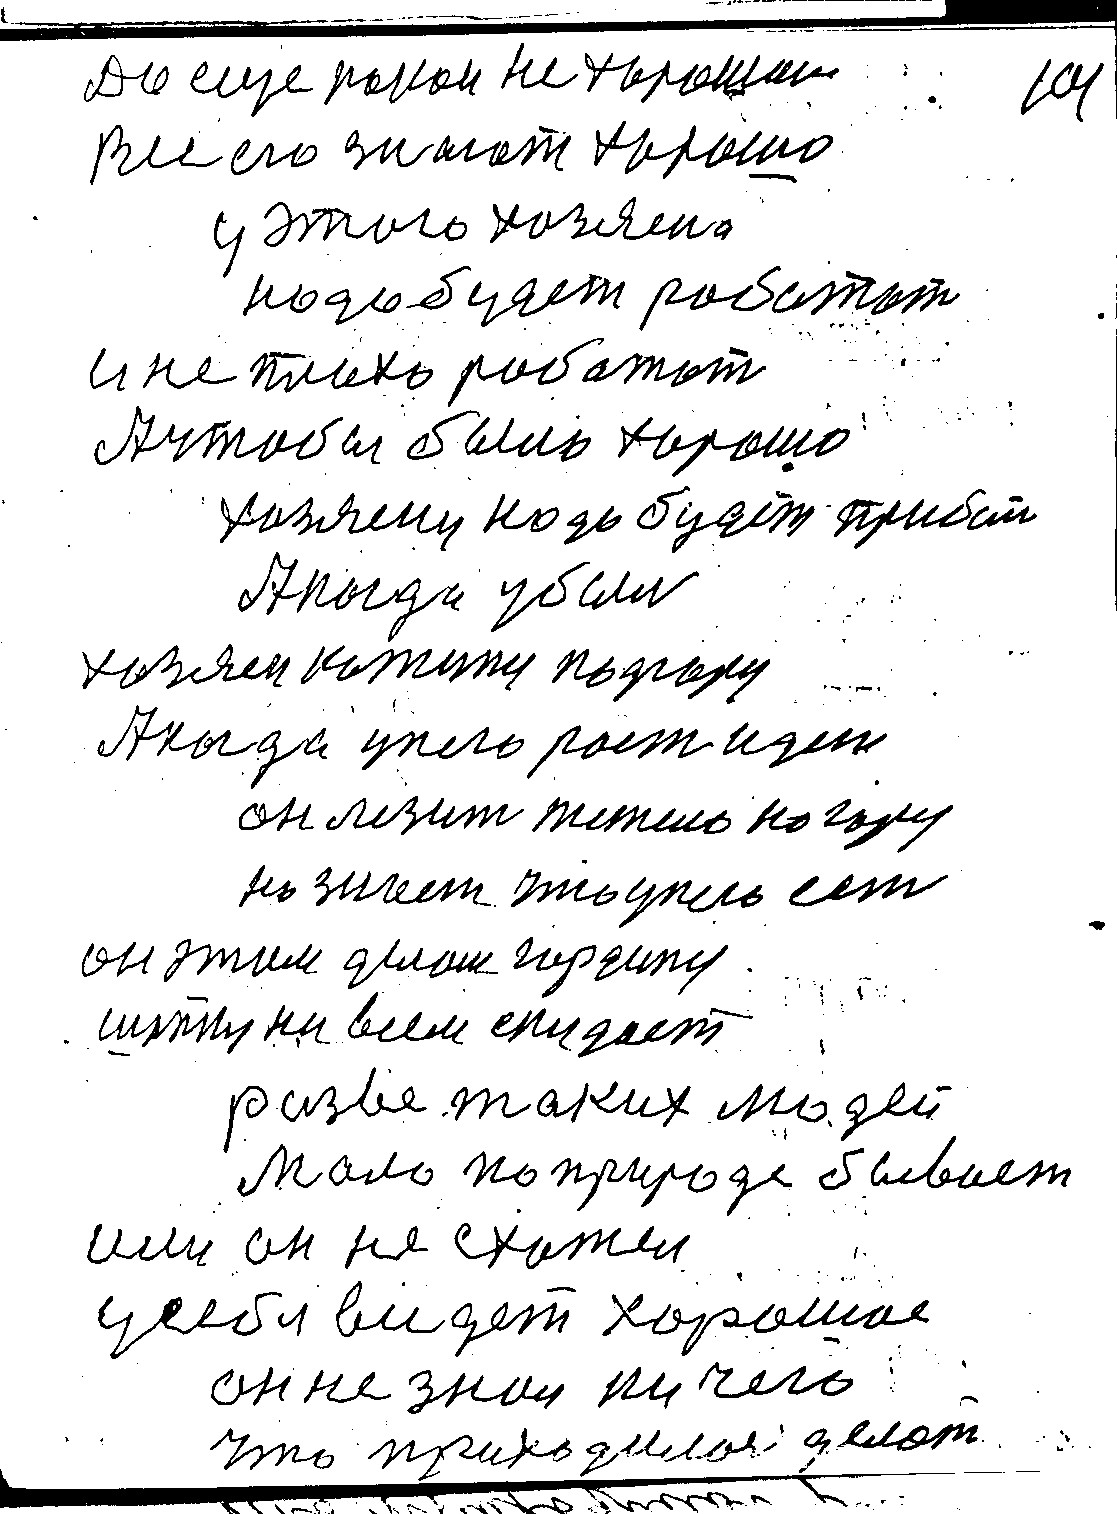 До еще покой не хороший
Все его знают хорошо
у этого хозяена
надо будет работат
и не плохо работат
А чтобы было хорошо
хозяену надо будет прибат
А когда убыли
хозяен катит под гору
А когда у него рост идет
он лезит тежело на гору
но знает что у него ест
он этим делом
шапку на всем скидает
разве таких людей
Мало по природе бывает
или он не схожей
у себя видет хорошое
он не знал ничего
что приходилося делат